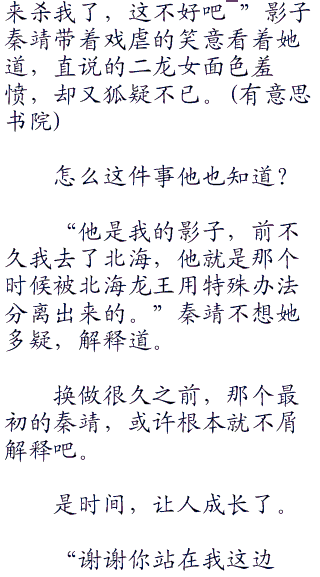 来杀我了，这不好吧~”影子
秦靖带着戏虐的笑意看着她
道，直说的二龙女面色羞
愤，却又狐疑不已。(有意思
书院)
怎么这件事他也知道？
“他是我的影子，前不
久我去了北海，他就是那个
时候被北海龙王用特殊办法
分离出来的。”秦靖不想她
多疑，解释道。
换做很久之前，那个最
初的秦靖，或许根本就不屑
解释吧。
是时间，让人成长了。
“谢谢你站在我这边